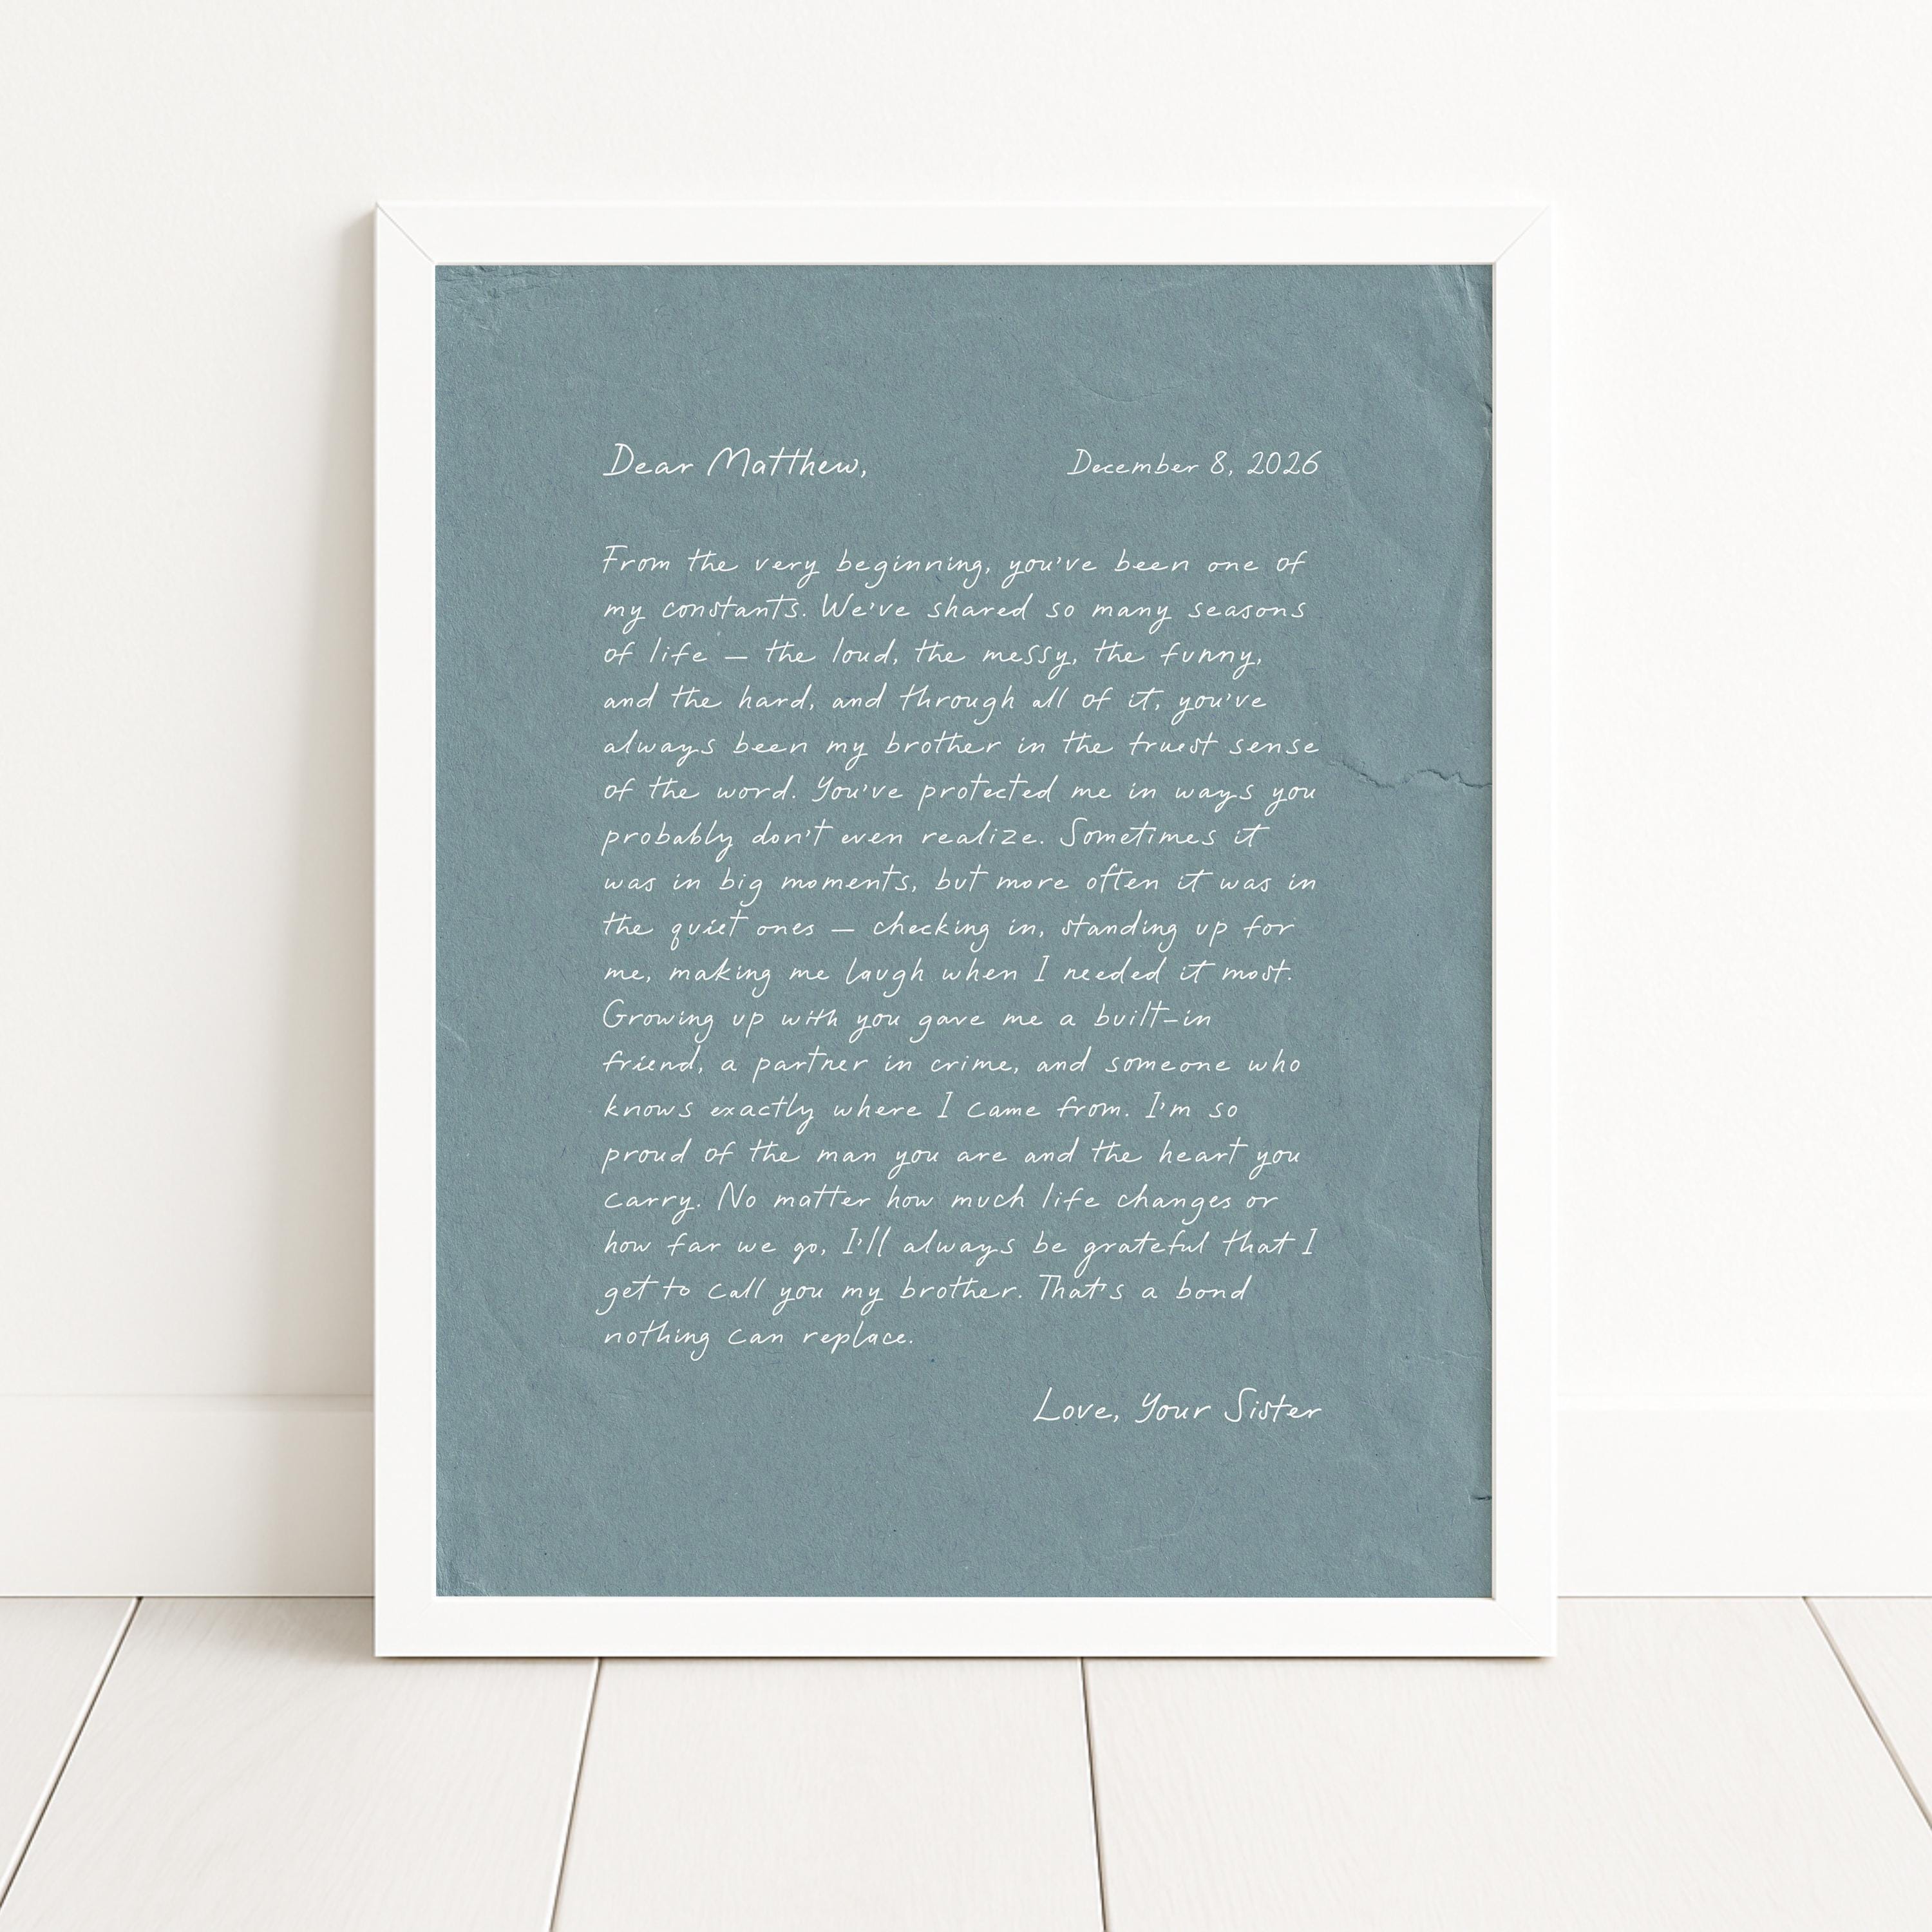 Dear Matthew, December 8, 2026
From the very beginning, you've been one of
my constants. We've shared so many seasons
of life – the loud, the messy, the funny,
and the hard, and through all of it, you've
always been my brother in the truest sense
of the word. You've protected me in ways you
probably don't even realize. Sometimes it
was in big moments, but more often it was in
the quiet ones – checking in, standing up for
me, making me laugh when I needed it most.
Growing up with you gave me a built-in
friend, a partner in crime, and someone who
knows exactly where I came from. I'm so
proud of the man you are and the heart you
carry. No matter how much life changes or
how far we go, I'll always be grateful that I
get to call you my brother. That's a bond
nothing can replace.
Love, Your Sister